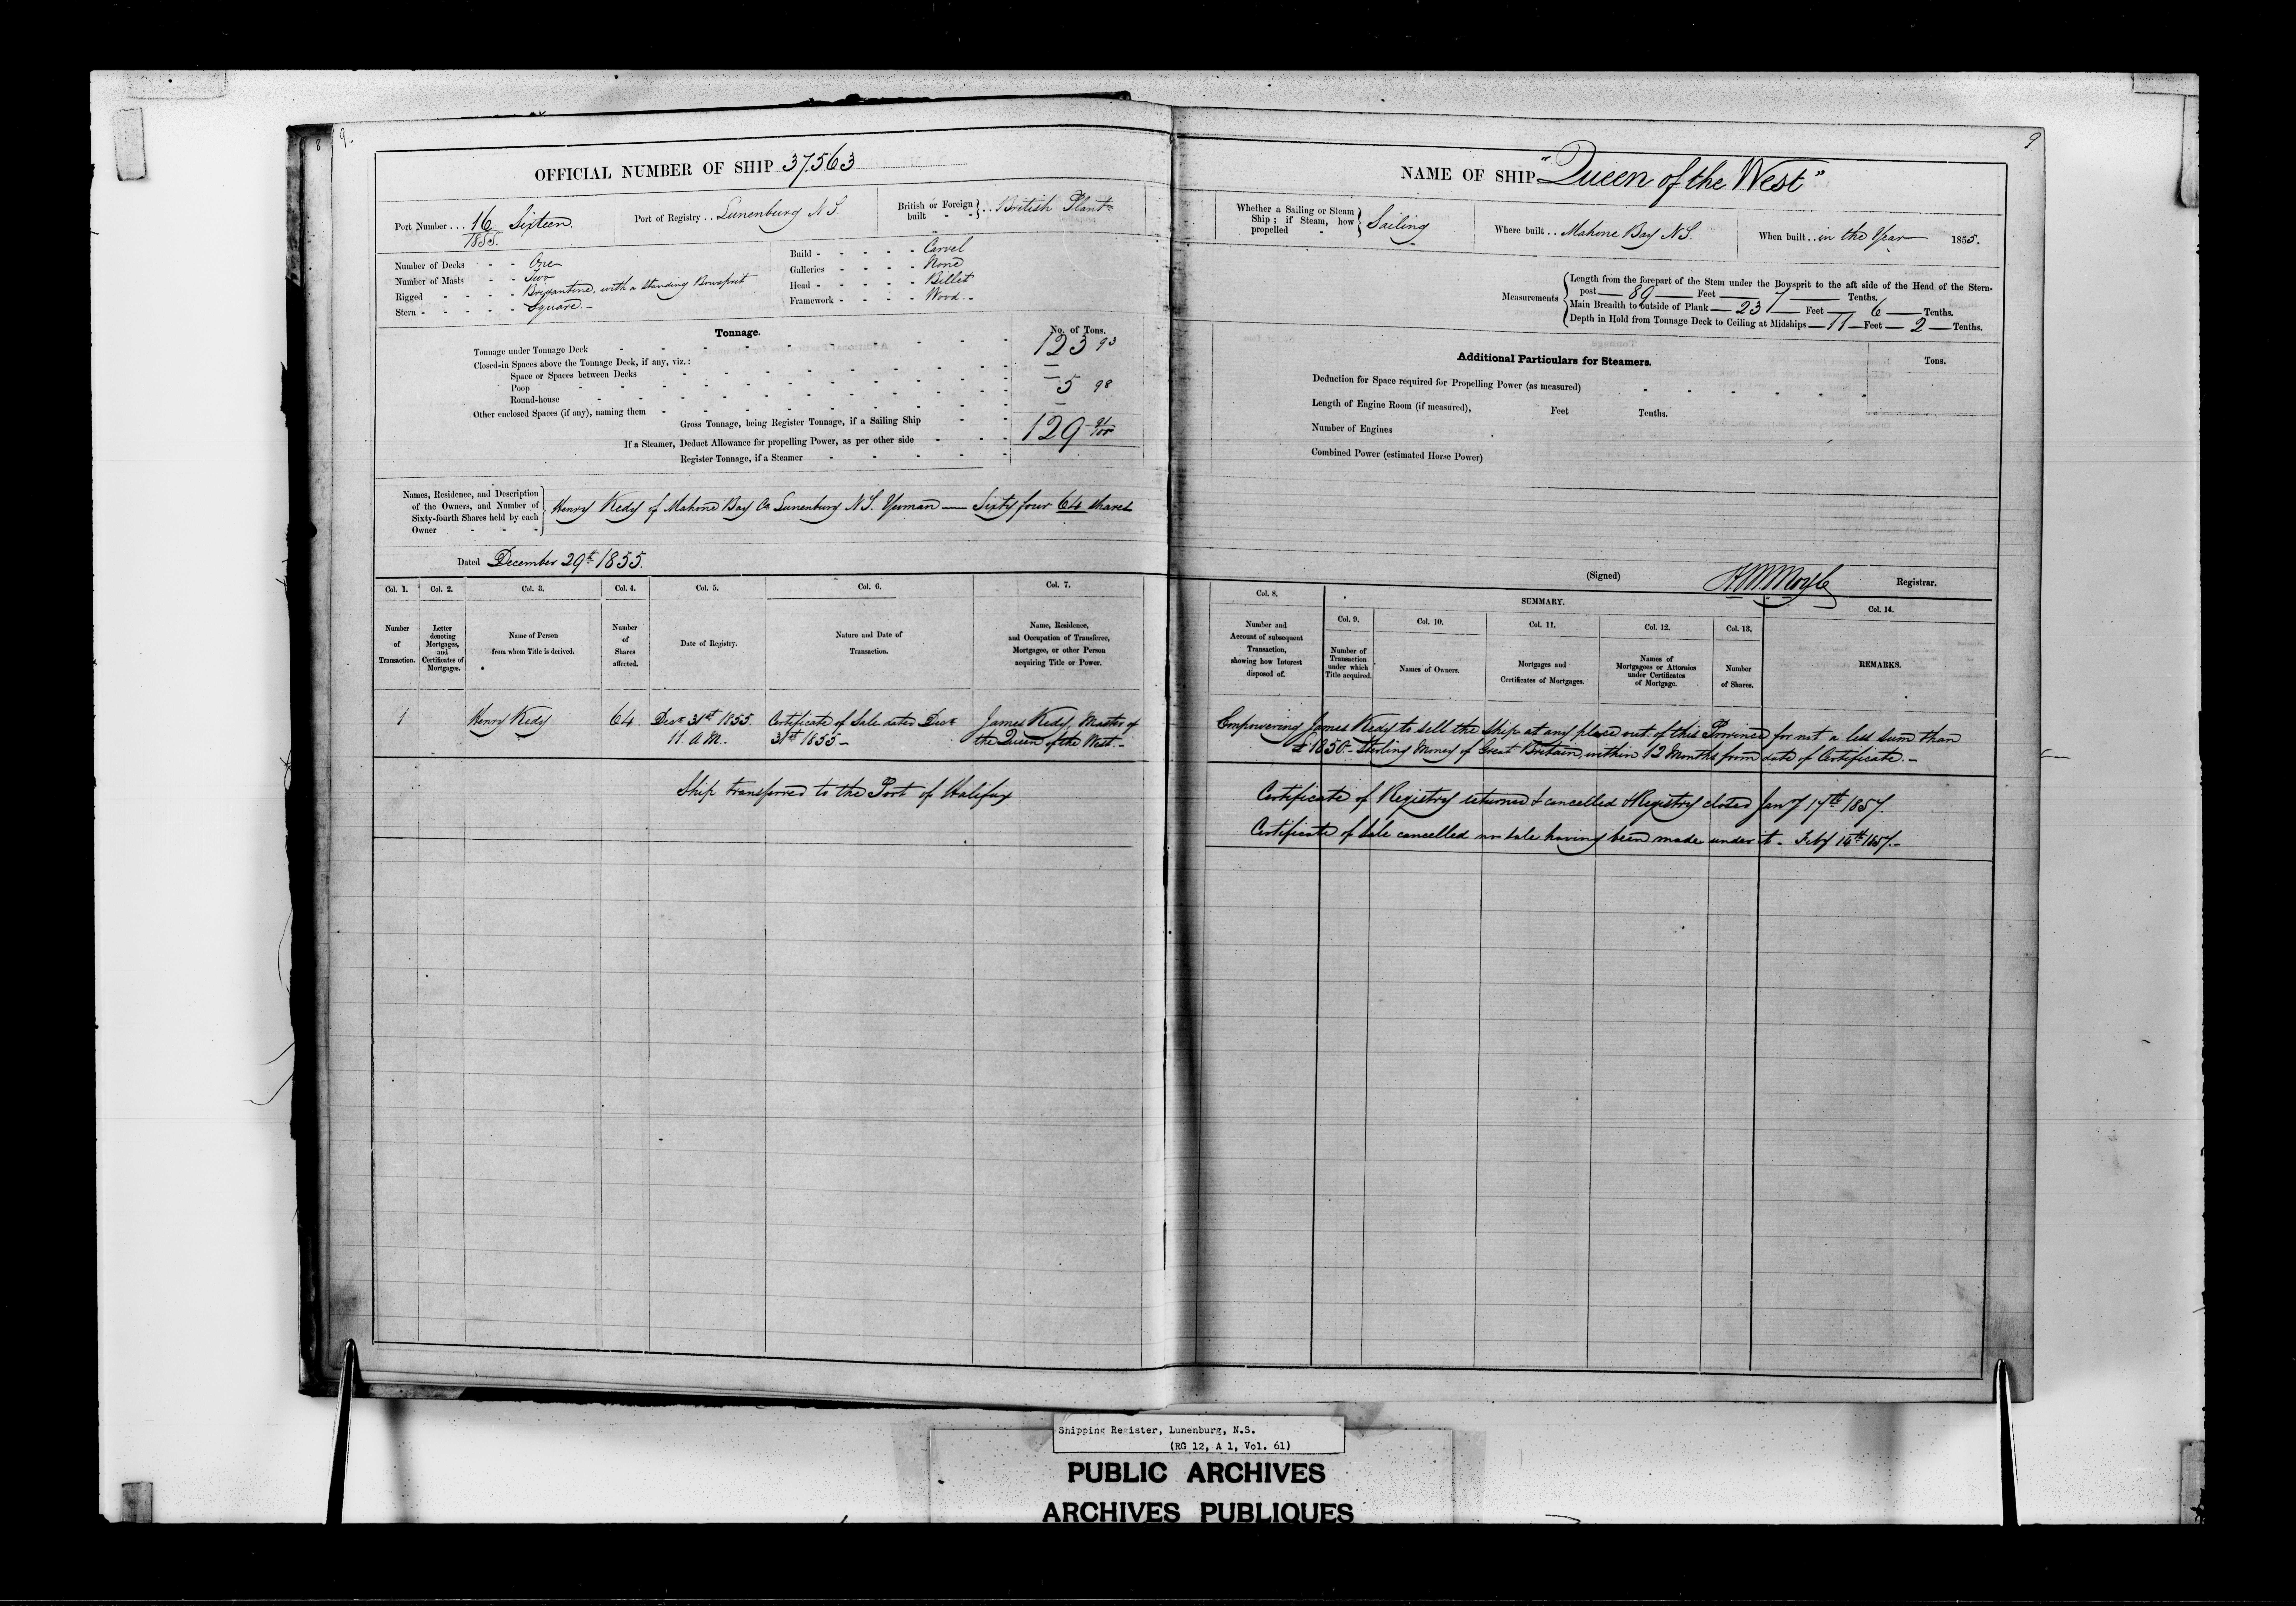 8
9.
9
OFFICIAL NUMBER OF SHIP 37.563
Port Number ... 16 Sixteen.
1855.
Port of Registry .. Lunenburg N S.
British or Foreign built - - } .. British Plant
Number of Decks - - One
Number of Masts - - Two
Rigged - - - - Brigantine, with a standing Bowsprit
Stern - - - - - Square. -
Build - - - - - Carvel
Galleries - - - - None
Head - - - - - Billet
Framework - - - - Wood. -
Tonnage.
No. of Tons.
Tonnage under Tonnage Deck 123 93
Closed-in Spaces above the Tonnage Deck, if any, viz.:
Space or Spaces between Decks —
Poop — 5 98
Round-house
Other enclosed Spaces (if any), naming them —
Gross Tonnage, being Register Tonnage, if a Sailing Ship 129 91/100
If a Steamer, Deduct Allowance for propelling Power, as per other side
Register Tonnage, if a Steamer
Names, Residence, and Description of the Owners, and Number of Sixty-fourth Shares held by each Owner - - - } Henry Kedy of Mahone Bay Co Lunenburg N S. Yeoman — Sixty four 64 shares
Dated December 29th 1855.
Col. 1. Col. 2. Col. 3. Col. 4. Col. 5. Col. 6. Col. 7.
Number of Transaction.
Letter denoting Mortgages, and Certificates of Mortgages.
Name of Person from whom Title is derived.
Number of Shares affected.
Date of Registry.
Nature and Date of Transaction.
Name, Residence, and Occupation of Transferee, Mortgagee, or other Person acquiring Title or Power.
1 Henry Kedy 64. Decr 31st 1855. Certificate of Sale dated Decr James Kedy Master of
11. A M. 31st 1855 - the Queen of the West. -
Ship transferred to the Port of Halifax
NAME OF SHIP "Queen of the West"
Whether a Sailing or Steam Ship; if Steam, how propelled - } Sailing
Where built .. Mahone Bay N S.
When built .. in the Year 1855.
Measurements
Length from the forepart of the Stem under the Bowsprit to the aft side of the Head of the Stern-
post — 89 — Feet — 7 — Tenths.
Main Breadth to outside of Plank — 23 — Feet — 6 — Tenths.
Depth in Hold from Tonnage Deck to Ceiling at Midships — 11 — Feet — 2 — Tenths.
Additional Particulars for Steamers.
Tons.
Deduction for Space required for Propelling Power (as measured)
Length of Engine Room (if measured), Feet Tenths.
Number of Engines
Combined Power (estimated Horse Power)
(Signed) Registrar.
Col. 8. SUMMARY. Col. 14.
Col. 9. Col. 10. Col. 11. Col. 12. Col. 13.
Number and Account of subsequent Transaction, showing how Interest disposed of.
Number of Transaction under which Title acquired.
Names of Owners.
Mortgages and Certificates of Mortgages.
Names of Mortgagees or Attornies under Certificates of Mortgage.
Number of Shares.
REMARKS.
Empowering James Kedy to sell the Ship at any place out of this Province for not a less sum than
£1850 - Sterling Money of Great Britain, within 12 Months from date of Certificate. -
Certificate of Registry returned & cancelled & Registry closed Jany 17th 1857.
Certificate of Sale cancelled no sale having been made under it - Feby 14th 1857. -
Shipping Register, Lunenburg, N.S.
(RG 12, A 1, Vol. 61)
PUBLIC ARCHIVES
ARCHIVES PUBLIQUES